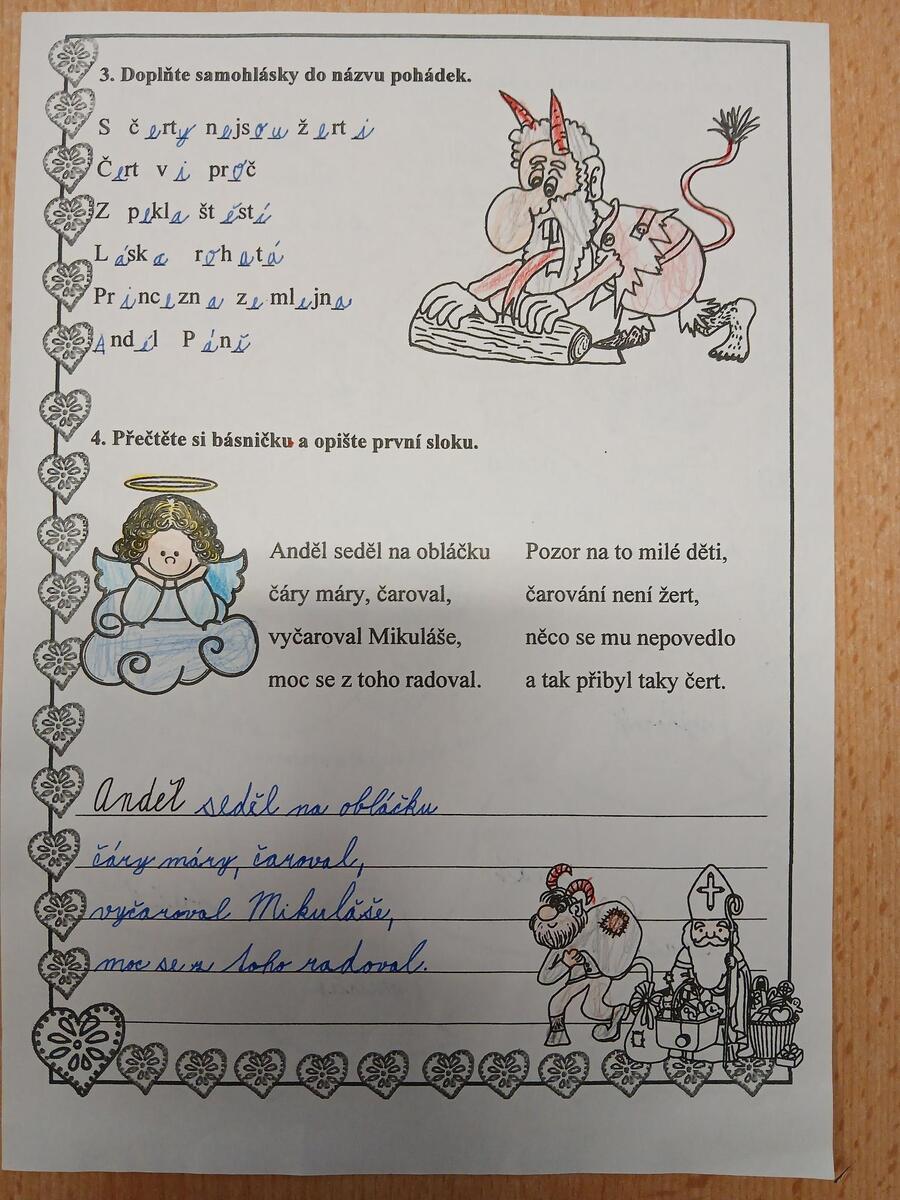 3. Doplňte samohlásky do názvu pohádek.
S čerty nejsou žerti
Čert ví proč
Z pekla štěstí
Láska rohatá
Princezna ze mlejna
Anděl Páně
4. Přečtěte si básničku a opište první sloku.
Anděl seděl na obláčku
čáry máry, čaroval,
vyčaroval Mikuláše,
moc se z toho radoval.
Pozor na to milé děti,
čarování není žert,
něco se mu nepovedlo
a tak přibyl taky čert.
Anděl seděl na obláčku
čáry máry, čaroval,
vyčaroval Mikuláše,
moc se z toho radoval.